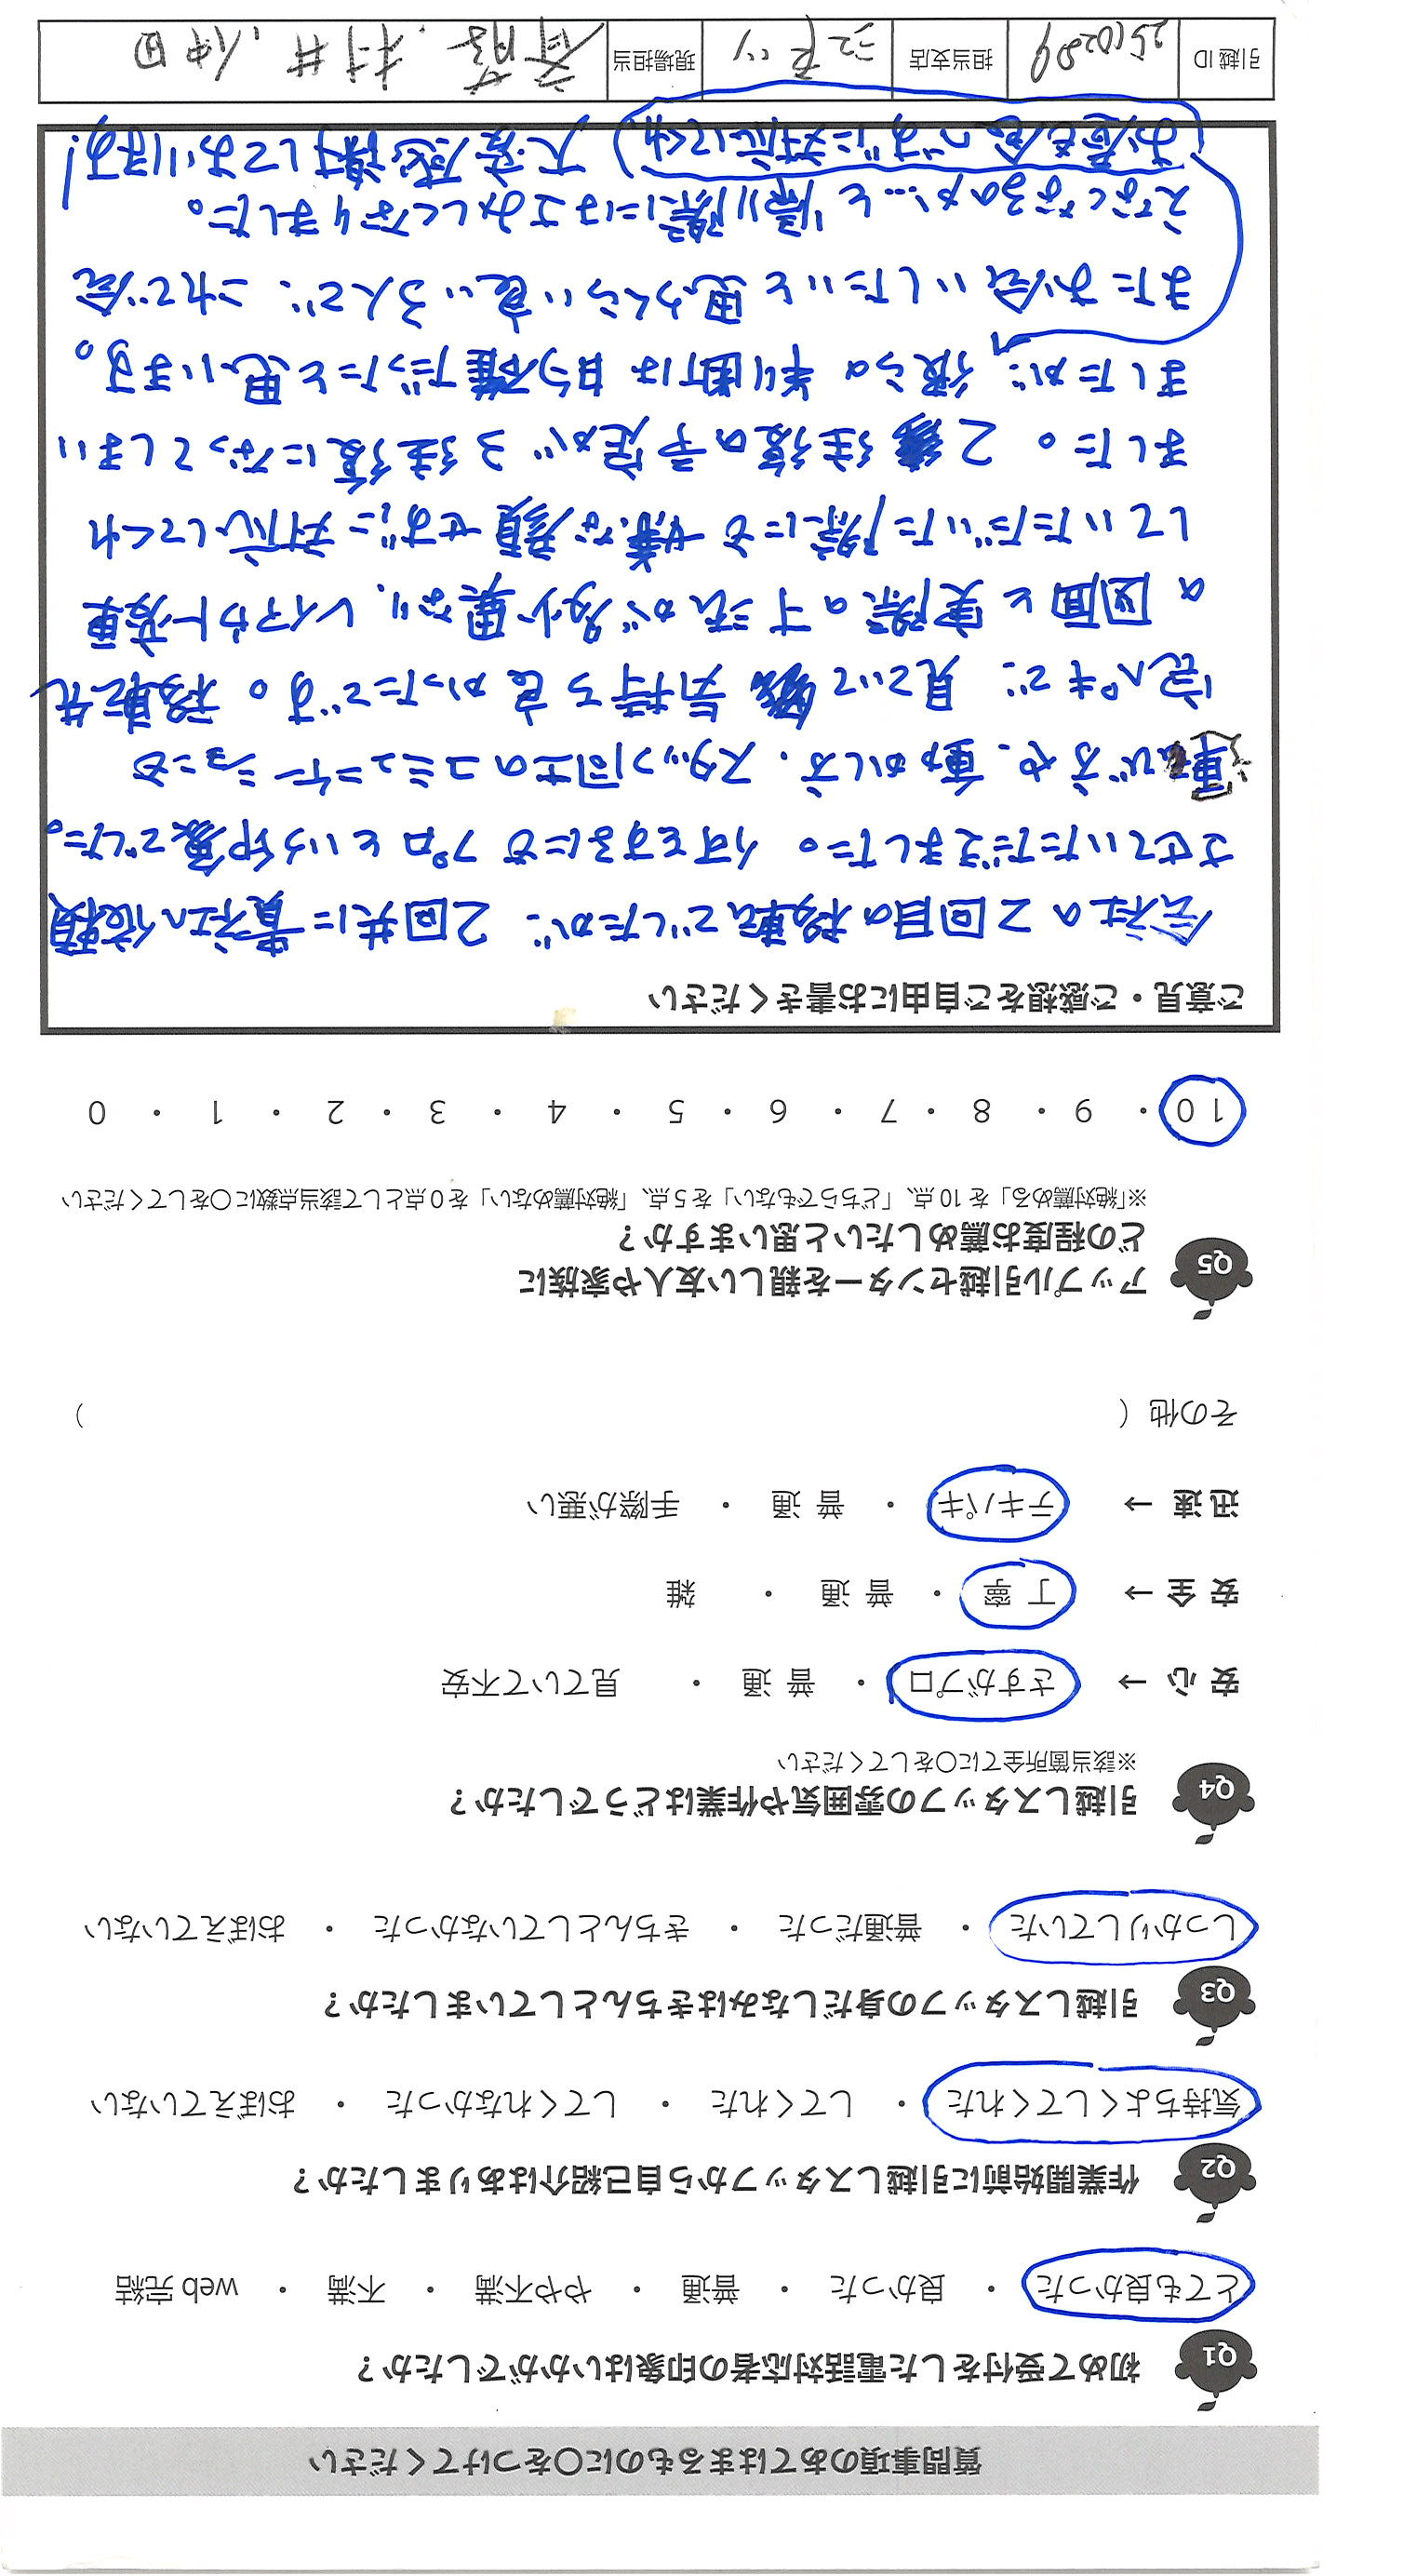 質問事項のあてはまるものに〇をつけてください
Q1 初めて受付をした電話対応者の印象はいかがでしたか？
とても良かった ・ 良かった ・ 普通 ・ やや不満 ・ 不満 ・ web 完結
Q2 作業開始前に引越しスタッフから自己紹介はありましたか？
気持ちよくしてくれた ・ してくれた ・ してくれなかった ・ おぼえていない
Q3 引越しスタッフの身だしなみはきちんとしていましたか？
しっかりしていた ・ 普通だった ・ きちんとしていなかった ・ おぼえていない
Q4 引越しスタッフの雰囲気や作業はどうでしたか？
※該当箇所全てに〇をしてください
安 心 → さすがプロ ・ 普 通 ・ 見ていて不安
安 全 → 丁 寧 ・ 普 通 ・ 雑
迅 速 → テキパキ ・ 普 通 ・ 手際が悪い
その他（ ）
Q5 アップル引越センターを親しい友人や家族に
どの程度お薦めしたいと思いますか？
※「絶対薦める」を 10 点、「どちらでもない」を 5 点、「絶対薦めない」を 0 点として該当点数に〇をしてください
10 ・ 9 ・ 8 ・ 7 ・ 6 ・ 5 ・ 4 ・ 3 ・ 2 ・ 1 ・ 0
ご意見・ご感想をご自由にお書きください
会社の2回目の移転でしたが、2回共に貴社へ依頼
させていただきました。何をするにもプロという印象でした。
運び方や、動かし方、スタッフ同士のコミュニケーションも
完ペキで、見ていて気持ち良かったです。移転先
の図面と実際の寸法が多少異なり、レイアウト変更
していただいた際にも嫌な顔せずに対応してくれ
ました。2往復の予定が3往復になってしまい
ましたが、彼らの判断は的確だったと思います。
またお会いしたいと思うくらい良い3人で、これで会
えなくなるのか…と帰り際にはさみしくなりました。
(お昼も食べずに対応してくれ) 大変感謝しております!
引越 ID 25102889 担当支店 江戸川 現場担当 斉藤、村井、仲田